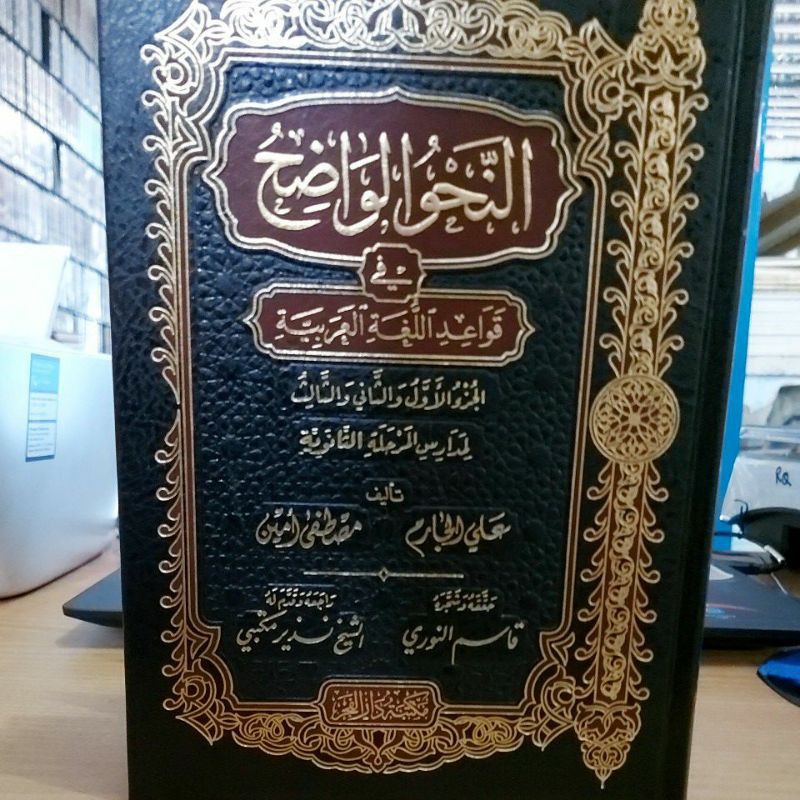 النَّحْوُ الْوَاضِحُ
في
قَوَاعِدِ اللُّغَةِ الْعَرَبِيَّةِ
الجُزْءُ الأَوَّلُ وَالثَّانِي وَالثَّالِثُ
لِمَدَارِسِ الْمَرْحَلَةِ الثَّانَوِيَّةِ
تأليف
علي الجارم مصطفى أمين
حَقَّقَهُ وَشَجَّرَهُ رَاجَعَهُ وَقَدَّمَ لَهُ
قاسم النوري الشيخ نذير مكتبي
مكتبة دار الفجر
RQ